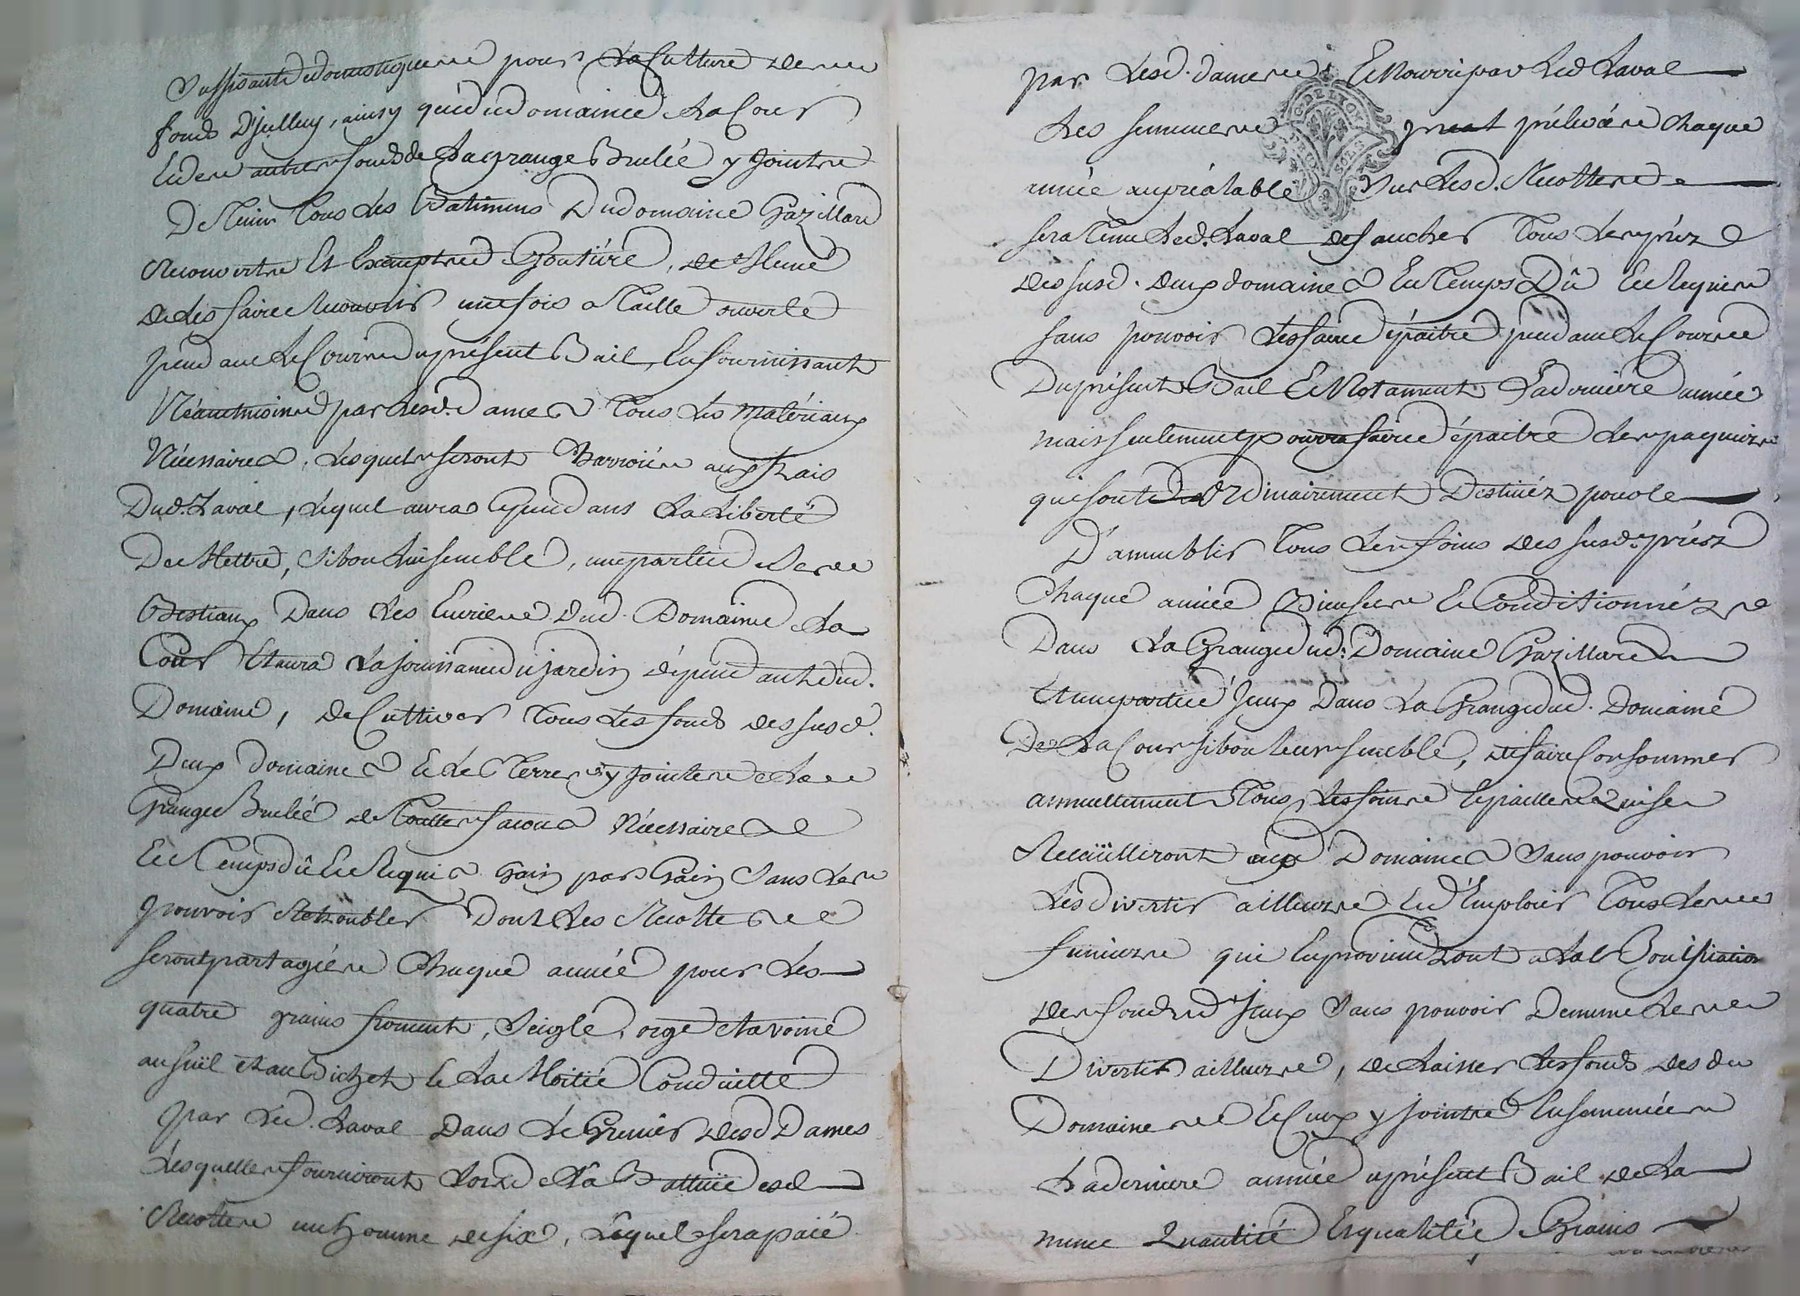 Suffisante de domestiques pour la Culture des
fonds D'jullieu, ainsy que du domaine de la Cour
Et des autres fonds de la grange Brulée y jointre
De Tenir Tous Les Batimens Dudomaine Gazillard
Recouvertre Et Exemptred Goutiere, de Meme
de les faire Recouvrir une fois a Taille ouverte
pendant Le Cours du présent Bail, En fournissant
Néantmoins par Lesd. dames Tous Les materiaux
Nécessaires, Lesquels seront Charroiés aux frais
Dud. Laval, Lequel aura Cependant La Liberté
De Mettre, si bon Lui semble, une partie des
Bestiaux Dans Les Ecuries Dud. Domaine de La
Cour Et aura La jouissance du jardin dépendant dud.
Domaine, de Cultiver Tous Les fonds des susd.
Deux domaines Et Les Terres y jointes de La
Grange Brulée de Toutes facons Nécessaires
Et Temps dû Et Requis Gain par Gain sans Les
pouvoir Retroubler Dont Les Recoltes
seront partagées Chaque année pour Les
quatre grains froment, Seigle, orge et avoine
au süil et au Bichet et La Moitié Conduitte
par Led. Laval Dans Le Grenier Desd Dames
Lesquelles fourniront Lors de La Battüe desd
Recoltes un homme de six, Lequel sera paié
par Lesd. dames Et Nourri par Led Laval
Les semences prélevées Chaque
année au préalable sur Lesd. Recoltes
sera Tenu Led. Laval de faucher Tous Les préz
des susd. deux domaines En Temps Dû Et Requis
sans pouvoir Les faire épaitre pendant Le Cours
Du présent Bail Et Notament La derniere année
mais seulement pourra faire épaitre Les paquiers
qui sont ordinairement Destinés pour le
D'ameublir Tous Les foins des susd. préz
Chaque année Bien secs Et Conditionnéz
Dans La Grange dud. Domaine Gazillard
Et une partie d'Iceux Dans La Grange dud. Domaine
De La Cour si bon Leur semble, de faire Consommer
annuellement Tous Les foins Et pailles qui se
Recüilliront aux Domaines Sans pouvoir
Les divertir ailleurs Et d'Emploier Tous Les
fumiers qui En proviendront a La Bonification
des fonds d'Iceux Sans pouvoir De meme Les
Divertir ailleurs, de Laisser Les fonds des du
Domaines Et Ceux y jointre Ensemencés
La derniere année du présent Bail de La
meme Quantité Et qualitée de Grains